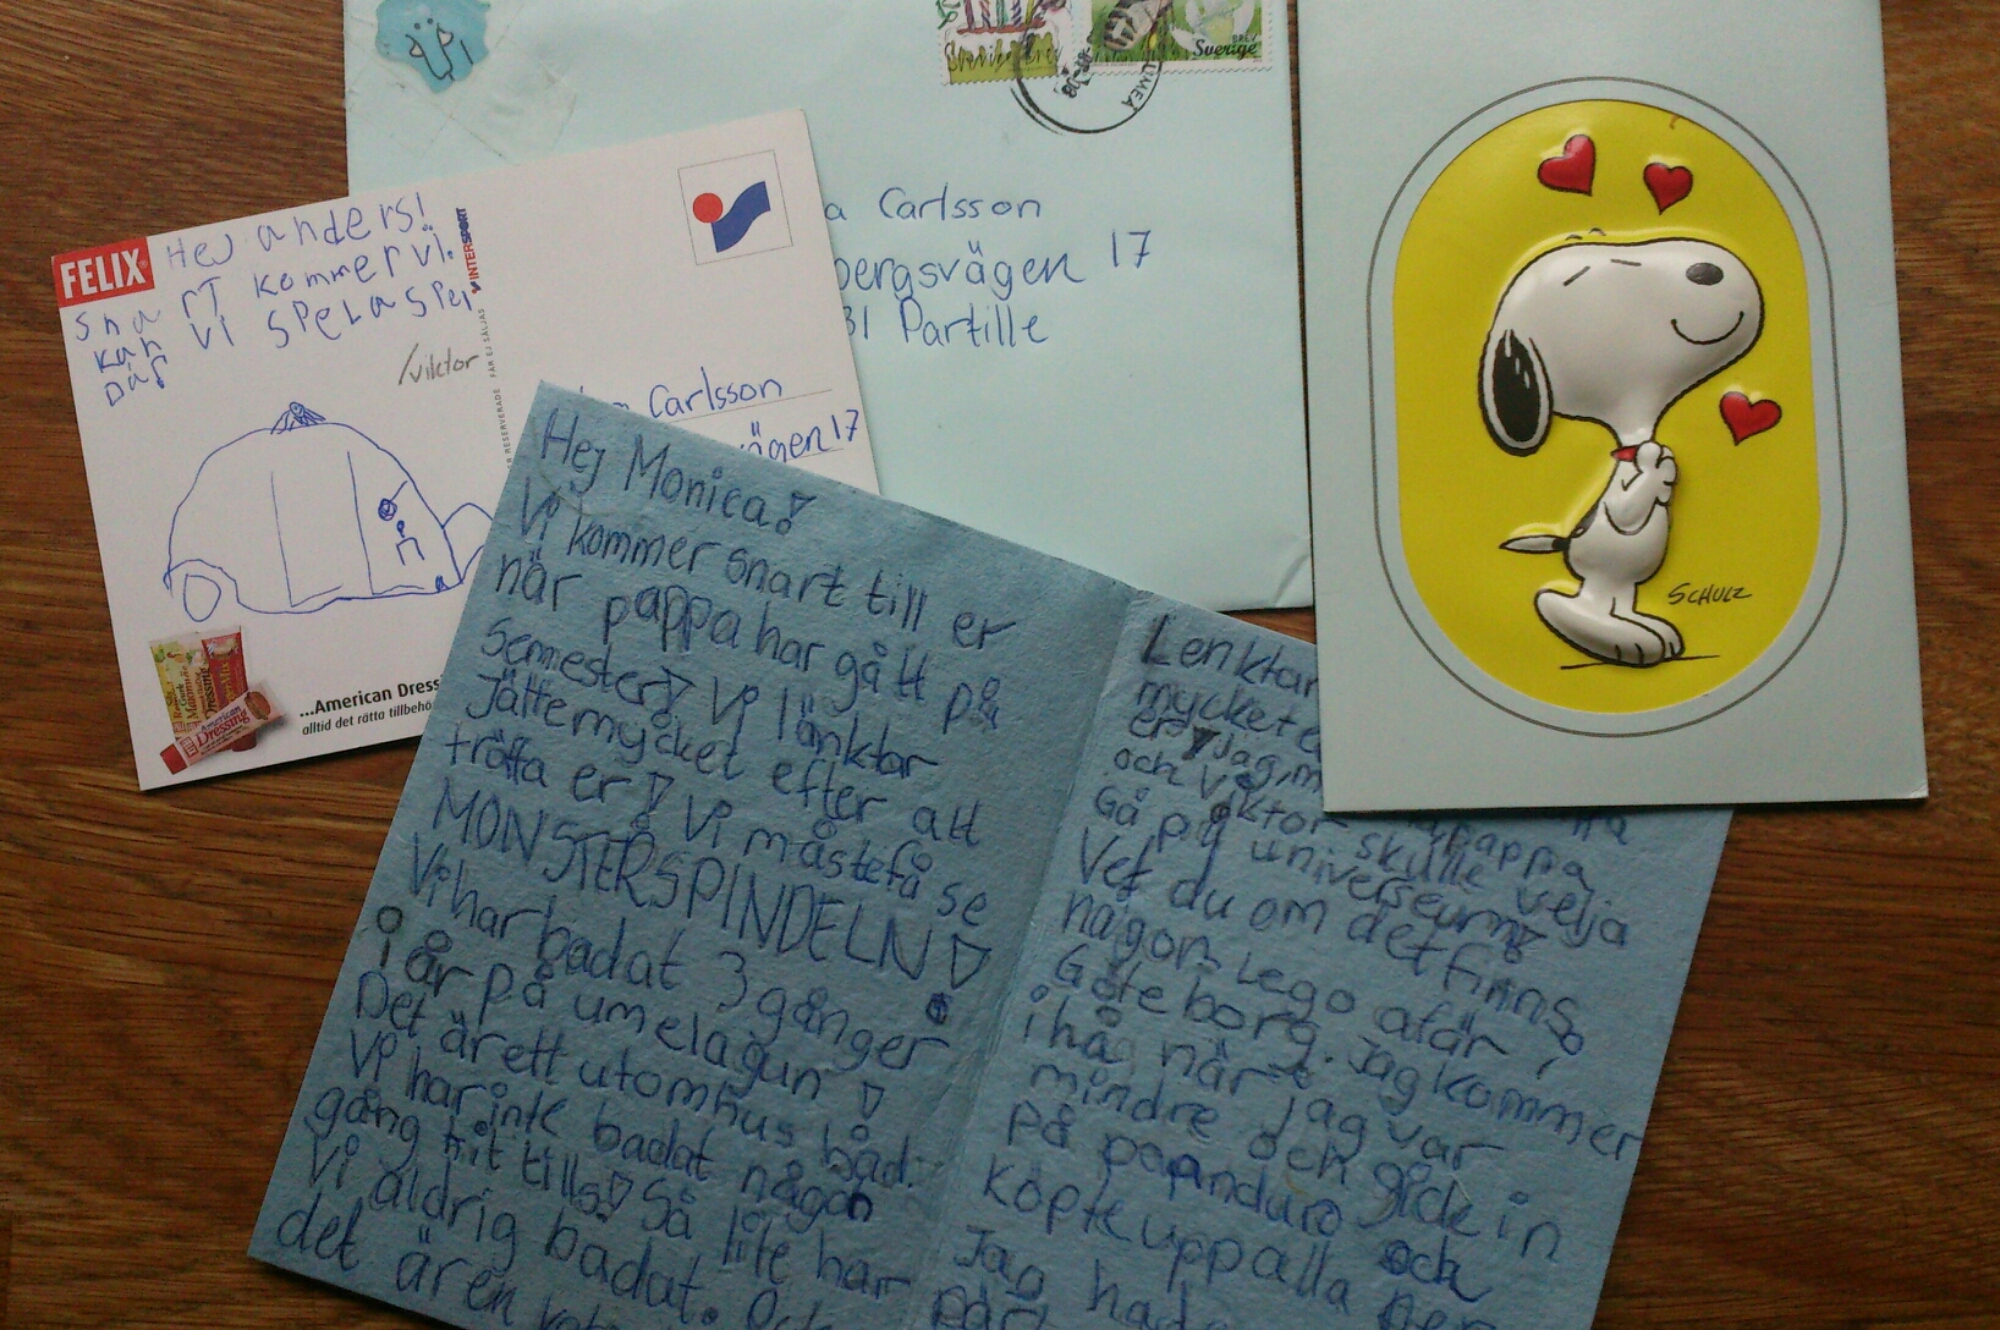 Sverige Brev
BREV
Sverige
UMEÅ
a Carlsson
bergsvägen 17
31 Partille
FELIX
Hej anders!
Snart kommer vi.
Kan vi spela spel
Där
/viktor
INTERSPORT
FÅR EJ SÄLJAS
RESERVERADE
Carlsson
ägen 17
...American Dress
alltid det rätta tillbehö
American
Dressing
SCHULZ
Hej Monica!
Vi kommer snart till er
när pappa har gått på
Semester! Vi länktar
Jättemycket efter att
träffa er! Vi måste få se
MONSTERSPINDELN!
Vi har badat 3 gånger
i år på umelagun!
Det är ett utomhus bad.
Vi har inte badat någon
gång hit tills! Så lite har
Vi aldrig badat. Och
det är en
Lenktar
mycket e
er! Jag, m
och Viktor pappa
skulle velja
Gå på universeum!
Vet du om det finns
någon Lego afär i
Göteborg. Jag kommer
ihå når jag var
mindre och gick in
på paanduro och
köpte upp alla per
Jag had
pär